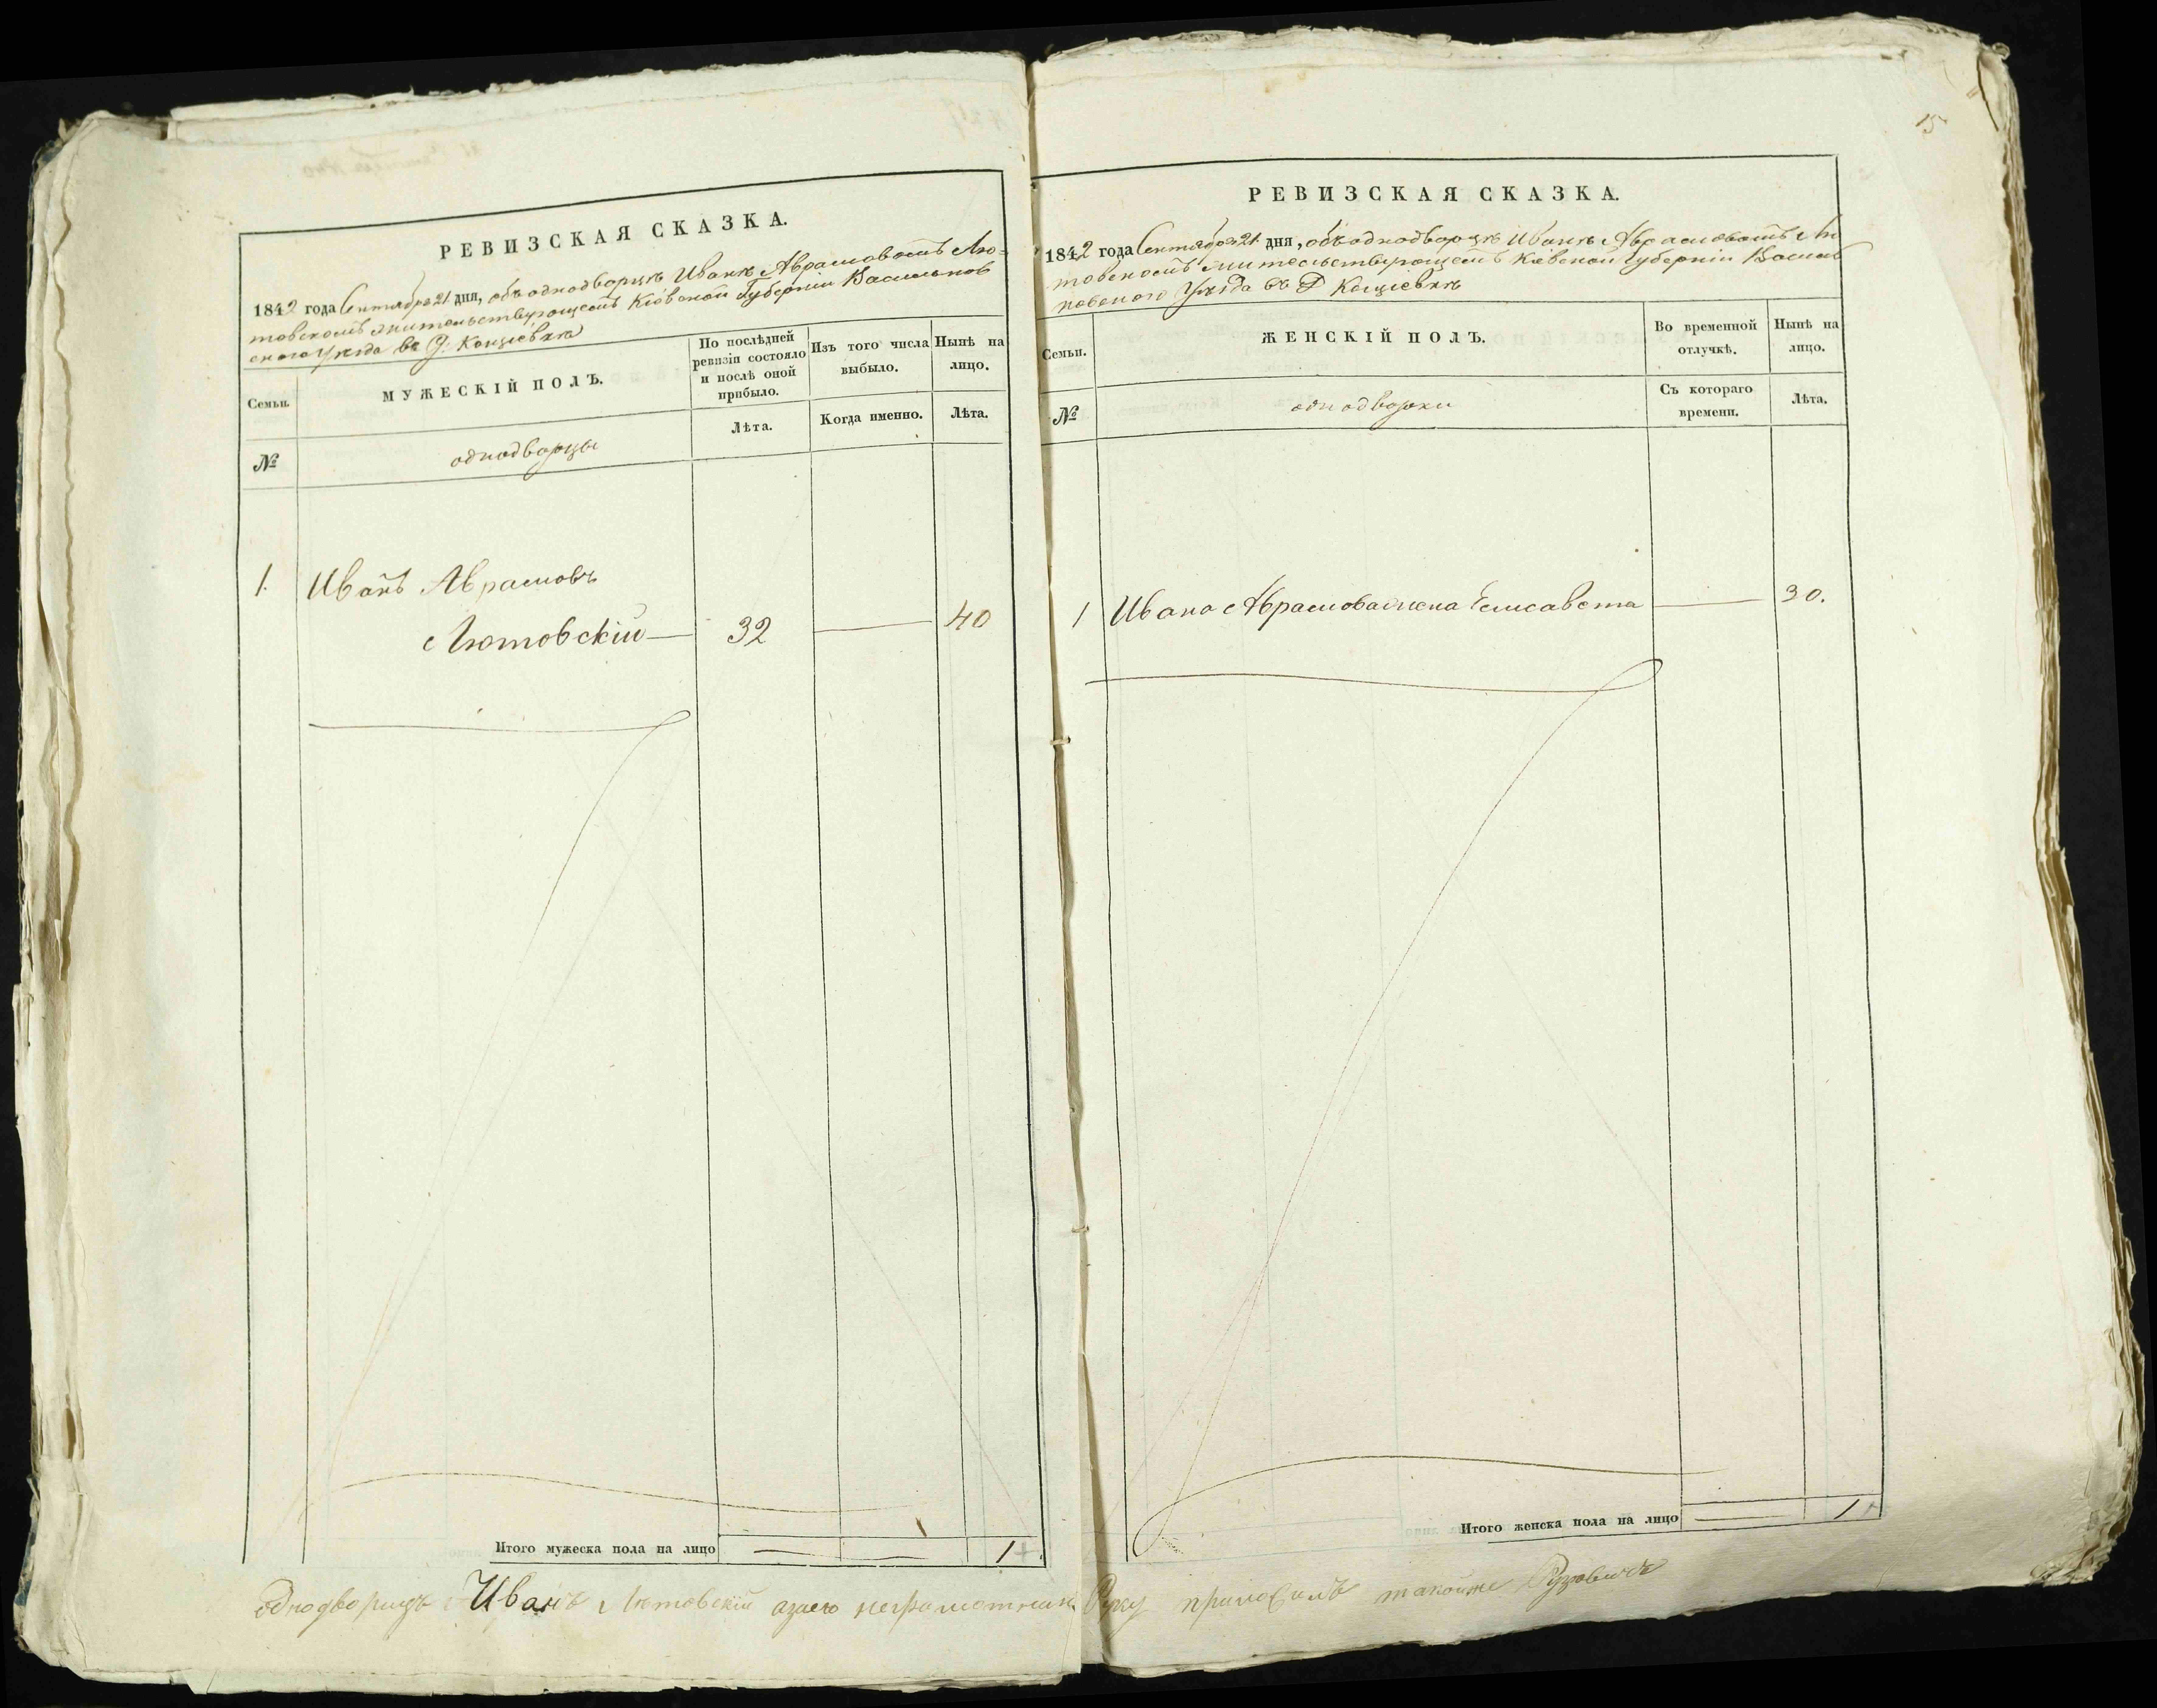 РЕВИЗСКАЯ СКАЗКА.
1842 года Сентября 21 дня, объ однодворцѣ Иванѣ Аврамовомъ Лю-
товскомъ жительствующемъ Кіевской Губерніи Васильков
скаго Уѣзда въ Д. Кощіевкѣ
Семьи.
МУЖЕСКІЙ ПОЛЪ.
По послѣдней
ревизіи состояло
и послѣ оной
прибыло.
Изъ того числа
выбыло.
Нынѣ на
лицо.
№
однодворцы
Лѣта.
Когда именно.
Лѣта.
1. Иванъ Аврамовъ
Лютовскій — 32 — 40
Итого мужеска пола на лицо 1
15
РЕВИЗСКАЯ СКАЗКА.
1842 года Сентября 21 дня, объ однодворцѣ Иванѣ Аврамовомъ Лю
товскомъ жительствующемъ Кіевской Губерніи Василь
ковскаго Уѣзда въ Д Кощіевкѣ
Семьи.
ЖЕНСКІЙ ПОЛЪ.
Во временной
отлучкѣ.
Нынѣ на
лицо.
№
однодворки
Съ котораго
времени.
Лѣта.
1 Ивана Аврамова жена Елисавета — 30.
Итого женска пола на лицо 1
Однодворецъ Иванъ Лютовскій азаего неграмотным Руку приложилъ такойже